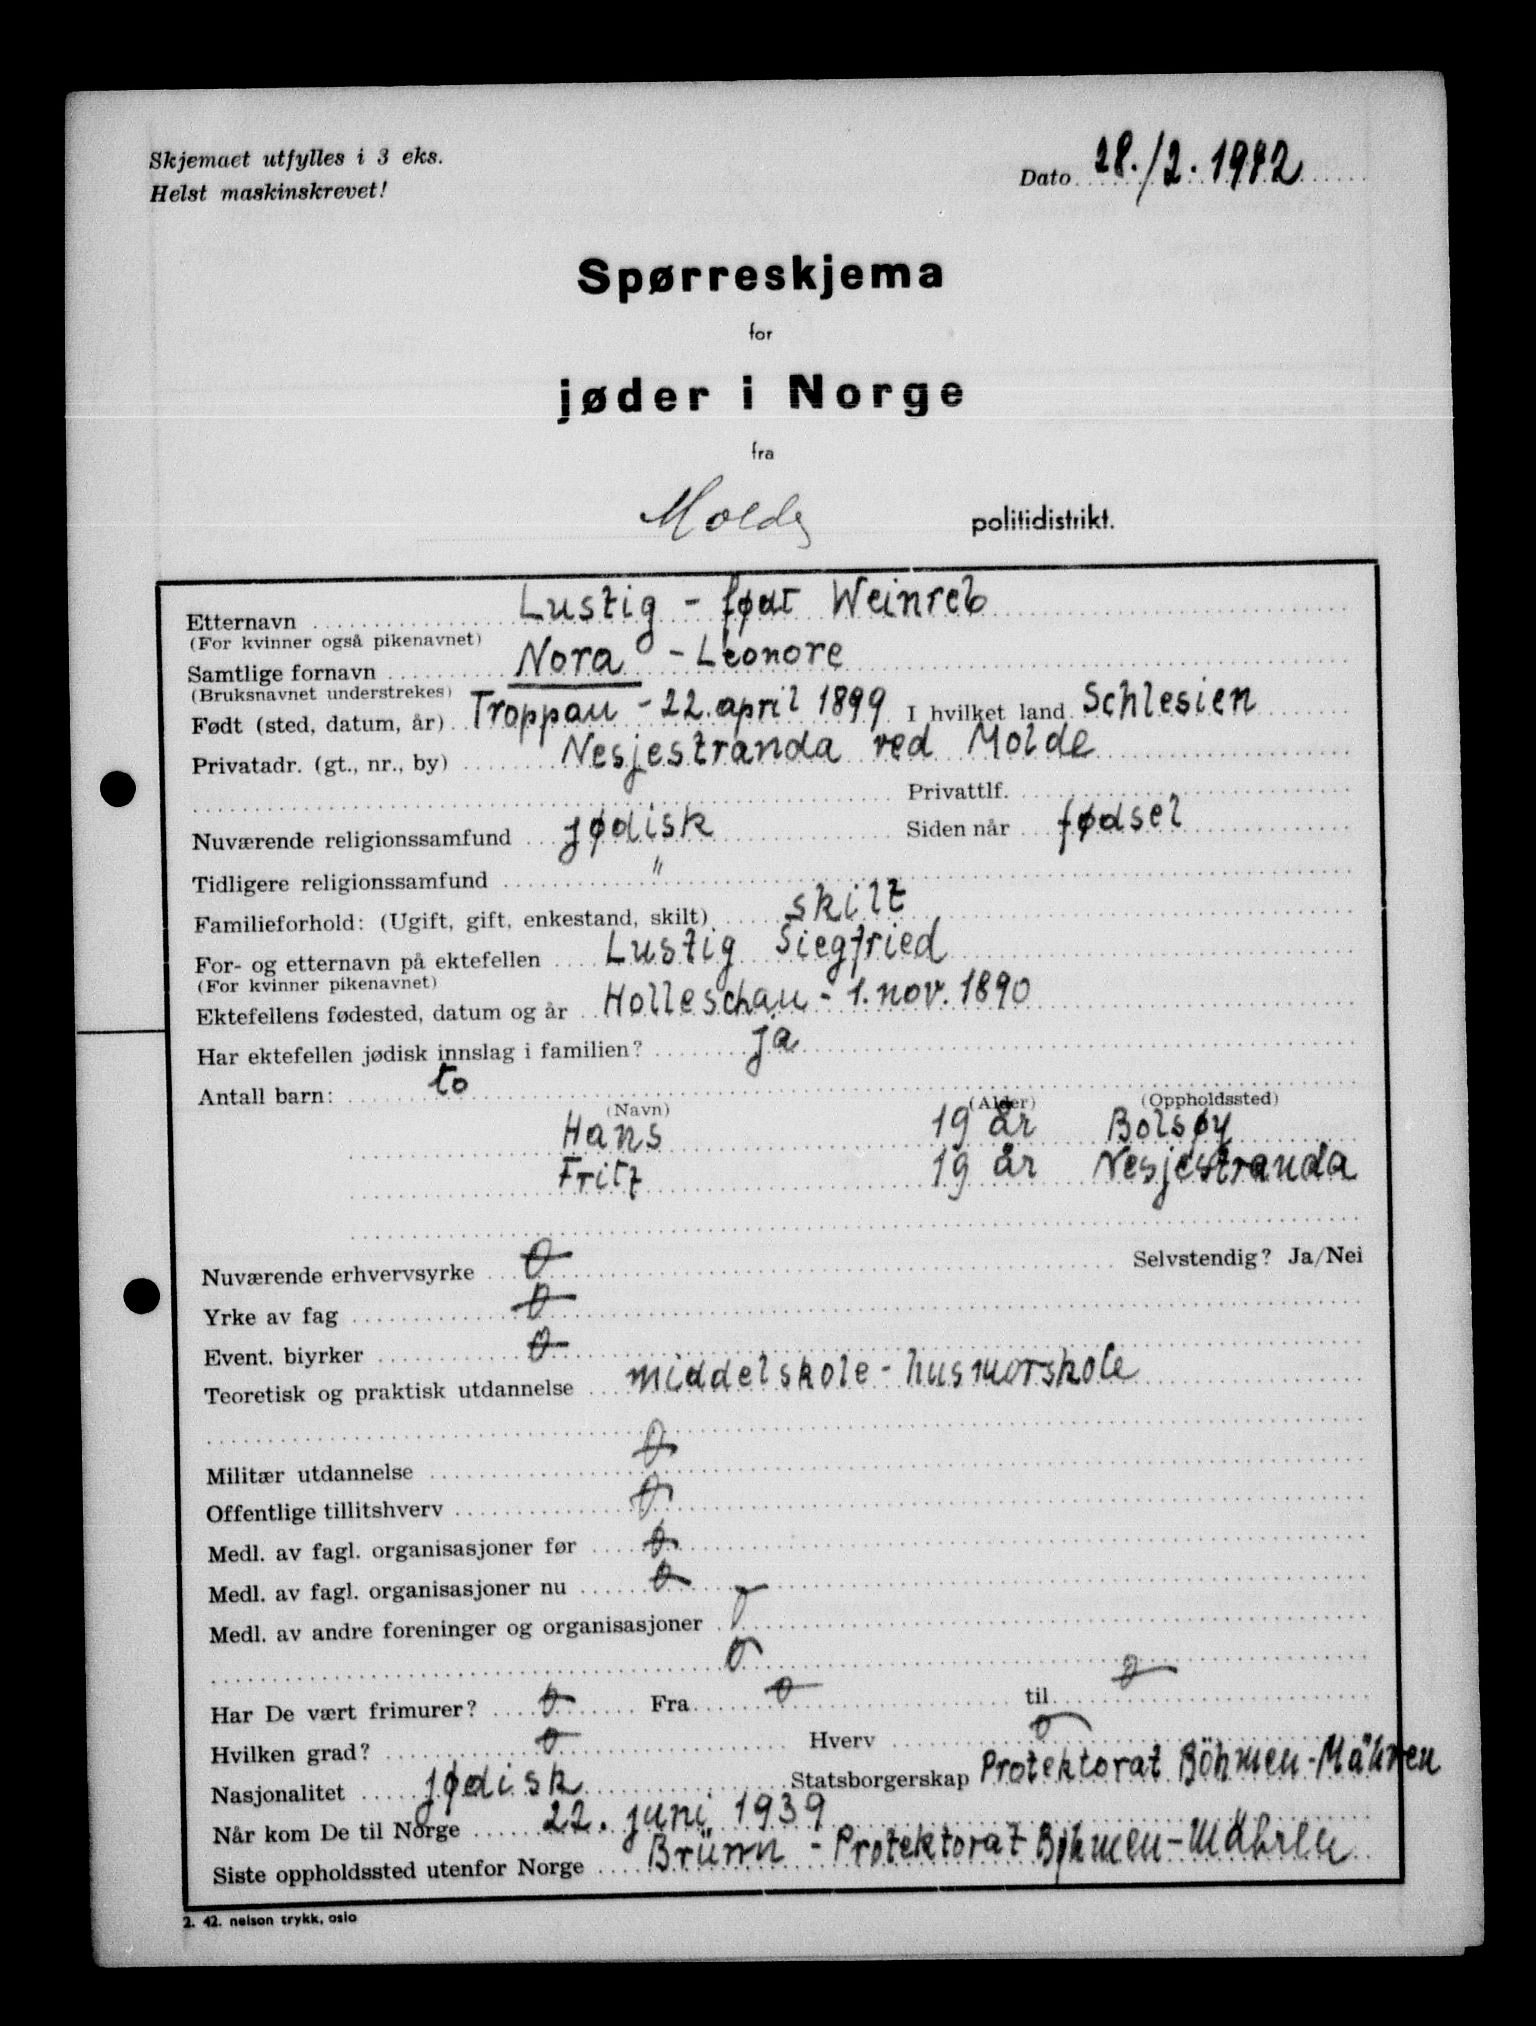 Skjemaet utfylles i 3 eks.
Helst maskinskrevet!
Dato 28./2. 1942
Spørreskjema
for
jøder i Norge
fra
Molde politidistrikt.
Etternavn Lustig - født Weinreb
(For kvinner også pikenavnet)
Samtlige fornavn Nora - Leonore
(Bruksnavnet understrekes)
Født (sted, datum, år) Troppau - 22. april 1899 I hvilket land Schlesien
Privatadr. (gt., nr., by) Nesjestranda ved Molde
Privattlf.
Nuværende religionssamfund jødisk Siden når fødsel
Tidligere religionssamfund "
Familieforhold: (Ugift, gift, enkestand, skilt) skilt
For- og etternavn på ektefellen Lustig Siegfried
(For kvinner pikenavnet)
Ektefellens fødested, datum og år Holleschau - 1. nov. 1890
Har ektefellen jødisk innslag i familien? ja
Antall barn: to
(Navn) (Alder) (Oppholdssted)
Hans 19 år Bolsøy
Fritz 19 år Nesjestranda
Nuværende erhvervsyrke 0 Selvstendig? Ja/Nei
Yrke av fag 0
Event. biyrker 0
Teoretisk og praktisk utdannelse middelskole - husmorskole
Militær utdannelse 0
Offentlige tillitshverv 0
Medl. av fagl. organisasjoner før 0
Medl. av fagl. organisasjoner nu 0
Medl. av andre foreninger og organisasjoner 0
0
Har De vært frimurer? 0 Fra 0 til 0
Hvilken grad? 0 Hverv 0
Nasjonalitet jødisk Statsborgerskap Protektorat Böhmen-Mähren
Når kom De til Norge 22. juni 1939
Siste oppholdssted utenfor Norge Brünn - Protektorat Bøhmen-Mähren
2. 42. nelson trykk, oslo